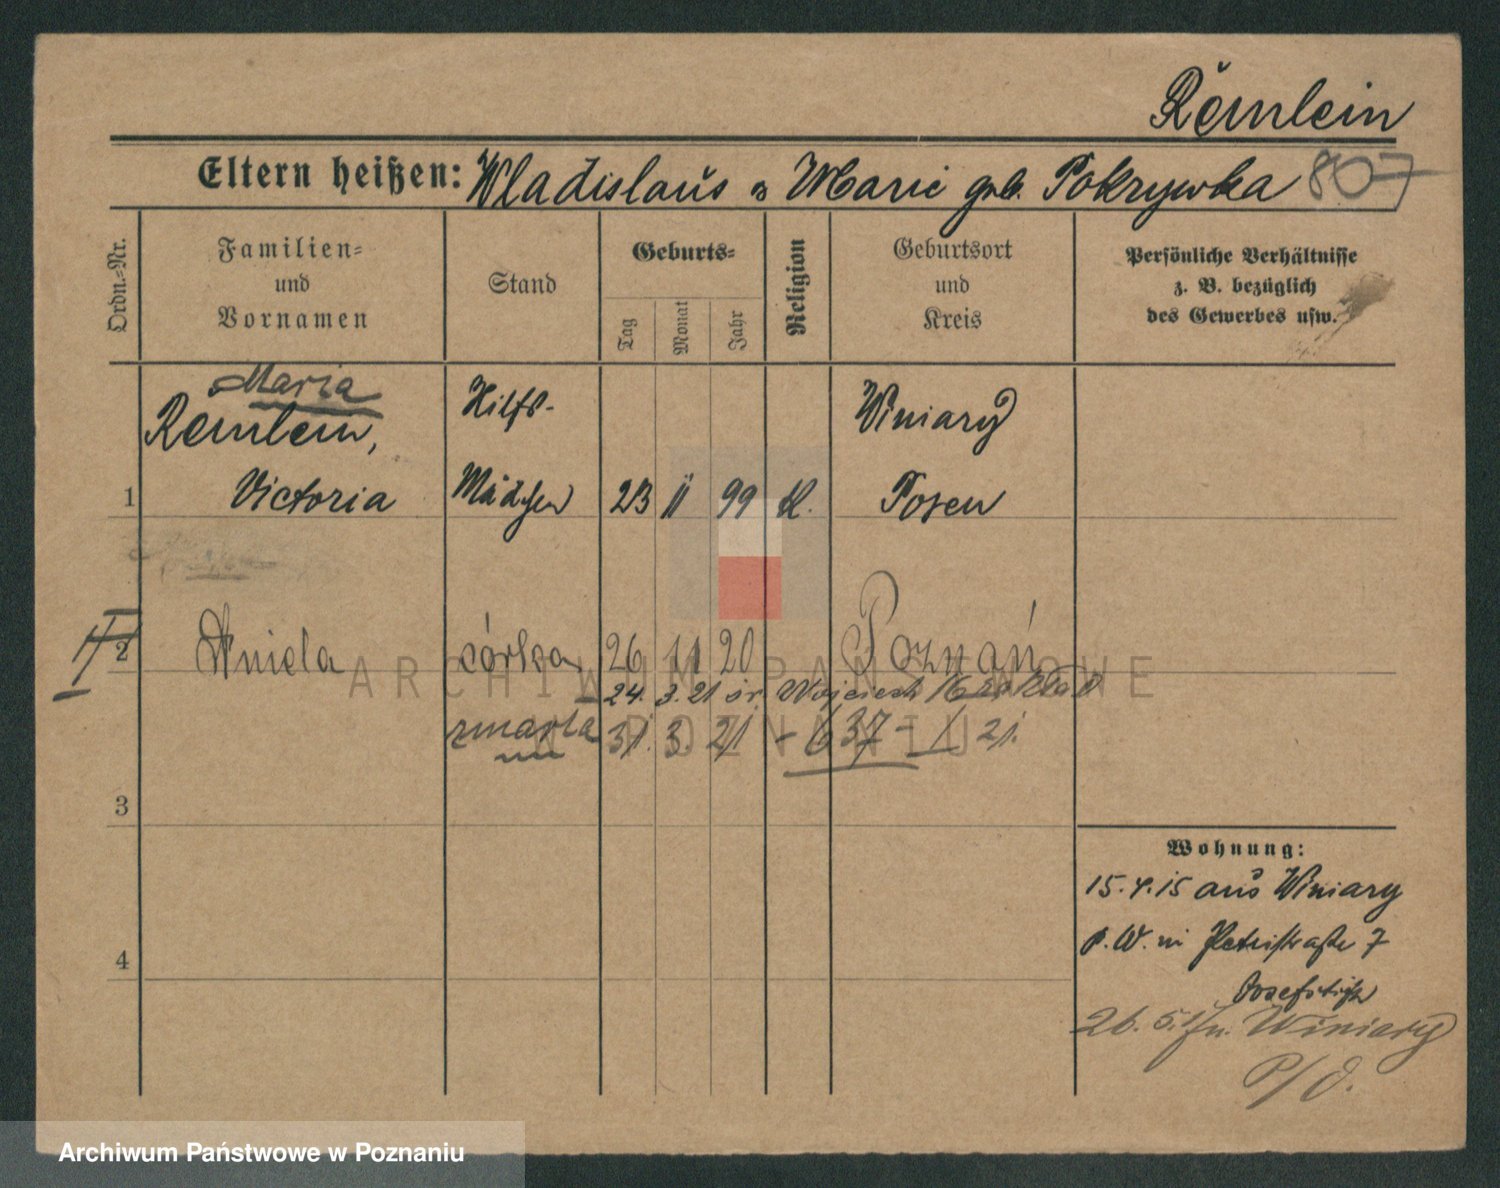 Remlein
Eltern heißen: Wladislaus u Marie geb. Pokrywka 807
Ordn.=Nr.
Familien=
und
Vornamen
Stand
Geburts=
Tag
Monat
Jahr
Religion
Geburtsort
und
Kreis
Persönliche Verhältnisse
z. B. bezüglich
des Gewerbes usw.
Maria
Remlein, Hilfs- Winiary
1 Victoria Mädchen 23 11 99 K. Posen
2 Aniela córka 26 11 20 Poznań
24. 3. 21 św. Wojciech
zmarła 31. 3. 21 - 637 - 21.
3
4
Wohnung:
15.4.15 aus Winiary
Petristraße 7
Josefstift
26. 5. n. Winiary
ARCHIWUM PAŃSTWOWE
W POZNANIU
Archiwum Państwowe w Poznaniu